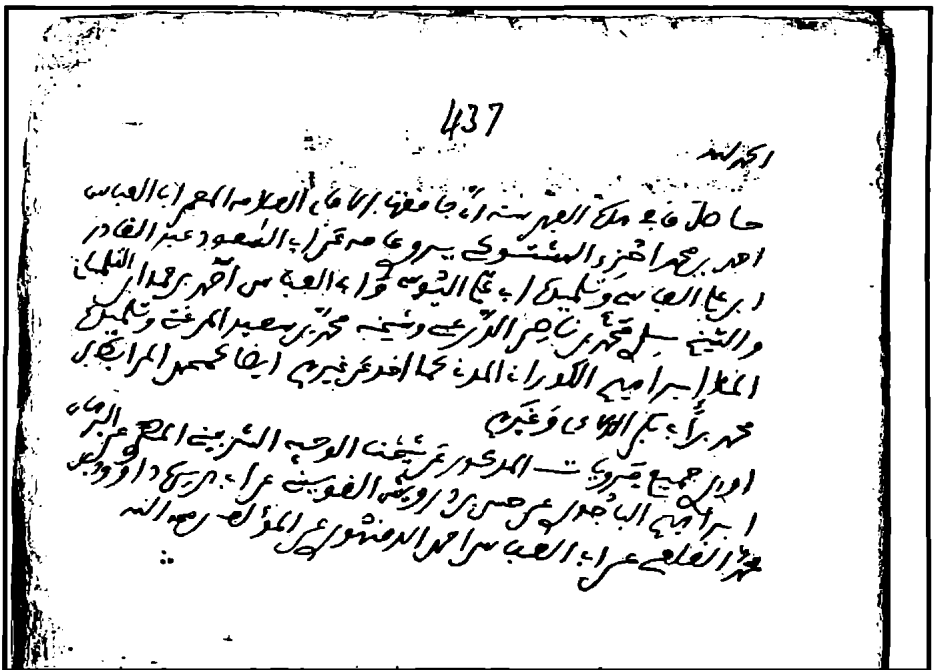 437
الحمد لله
حاصل ما في هذه الفهرسة أن جامعها الإمام العلامة المعمر أبا العباس
أحمد بن محمد احزي الهشتوكي يروي عامة عن أبي السعود عبد القادر
ابن علي الفاسي وتلميذه أبي علي اليوسي وأبي العباس أحمد بن حمدان التلمساني
والشيخ سيدي محمد بن ناصر الدرعي وشيخه محمد بن سعيد المرغتي وتلميذه
الملا إبراهيم الكوراني المدني كما أخذ عن غيرهم أيضا كمحمد المرابط بن
محمد بن أبي بكر الدلائي وغيرهم
أروي جميع مرويات المذكور عن شيخنا الوجيه الشربيني المصري عن البرهان
إبراهيم الباجوري عن حسن بن درويش القويسني عن أبي هريرة داوود بن
محمد القلعي عن أبي العباس أحمد الدمنهوري عن المؤلف رحمه الله